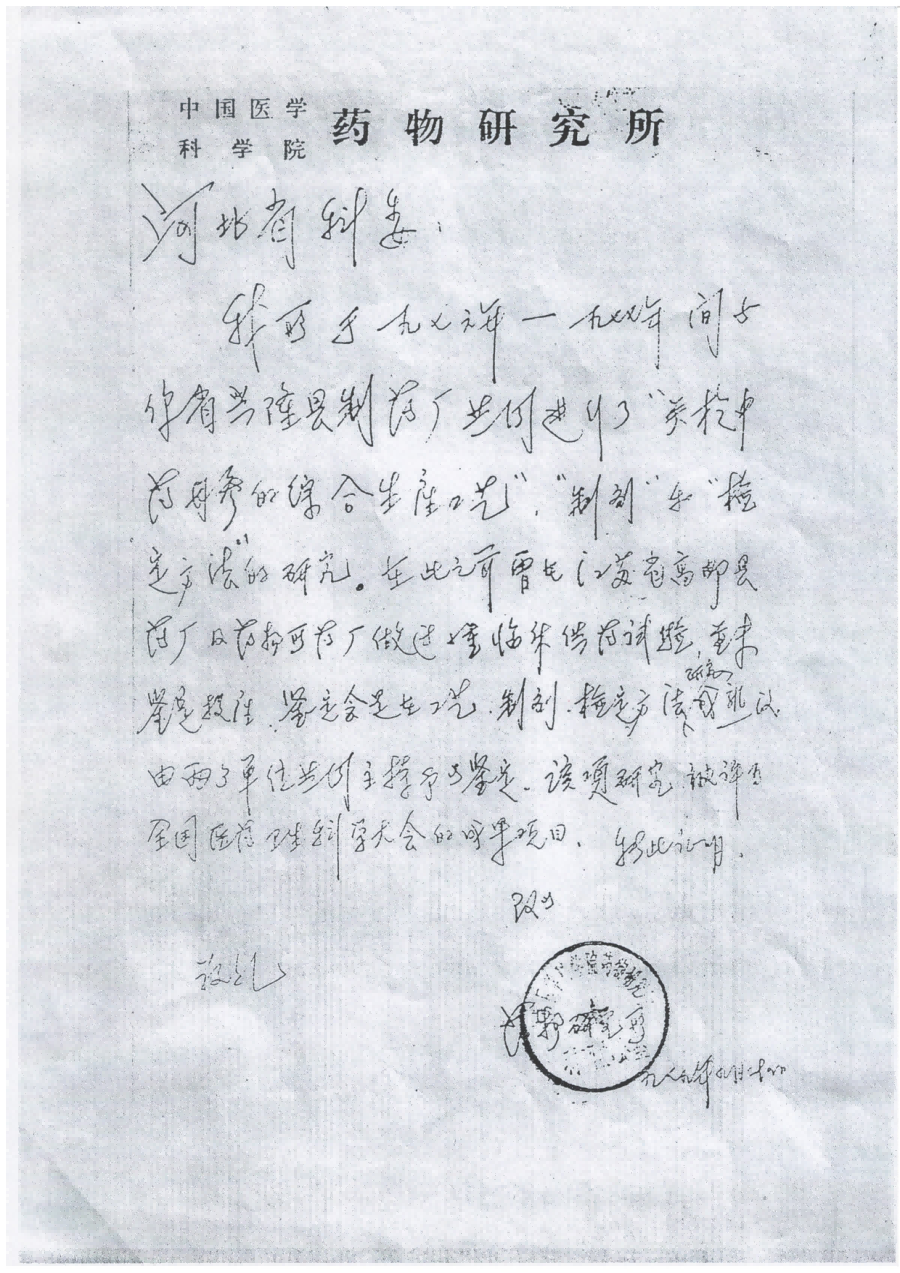 中国医学
科学院
药物研究所
河北省科委：
我所于一九七六年—一九七七年间与
你省兴隆县制药厂共同进行了“关于中
药丹参的综合生产工艺”、“制剂”和“检
定方法”的研究。在此之前曾在江苏省高邮县
药厂及药物所药厂做过一些临床供药试验，并未
鉴定投产。鉴定会是在工艺、制剂、检定方法成熟后
研究
由两个单位共同主持予以鉴定。该项研究被评为
全国医药卫生科学大会的成果项目。特此证明。
致以
敬礼
药物研究所
一九八九年九月